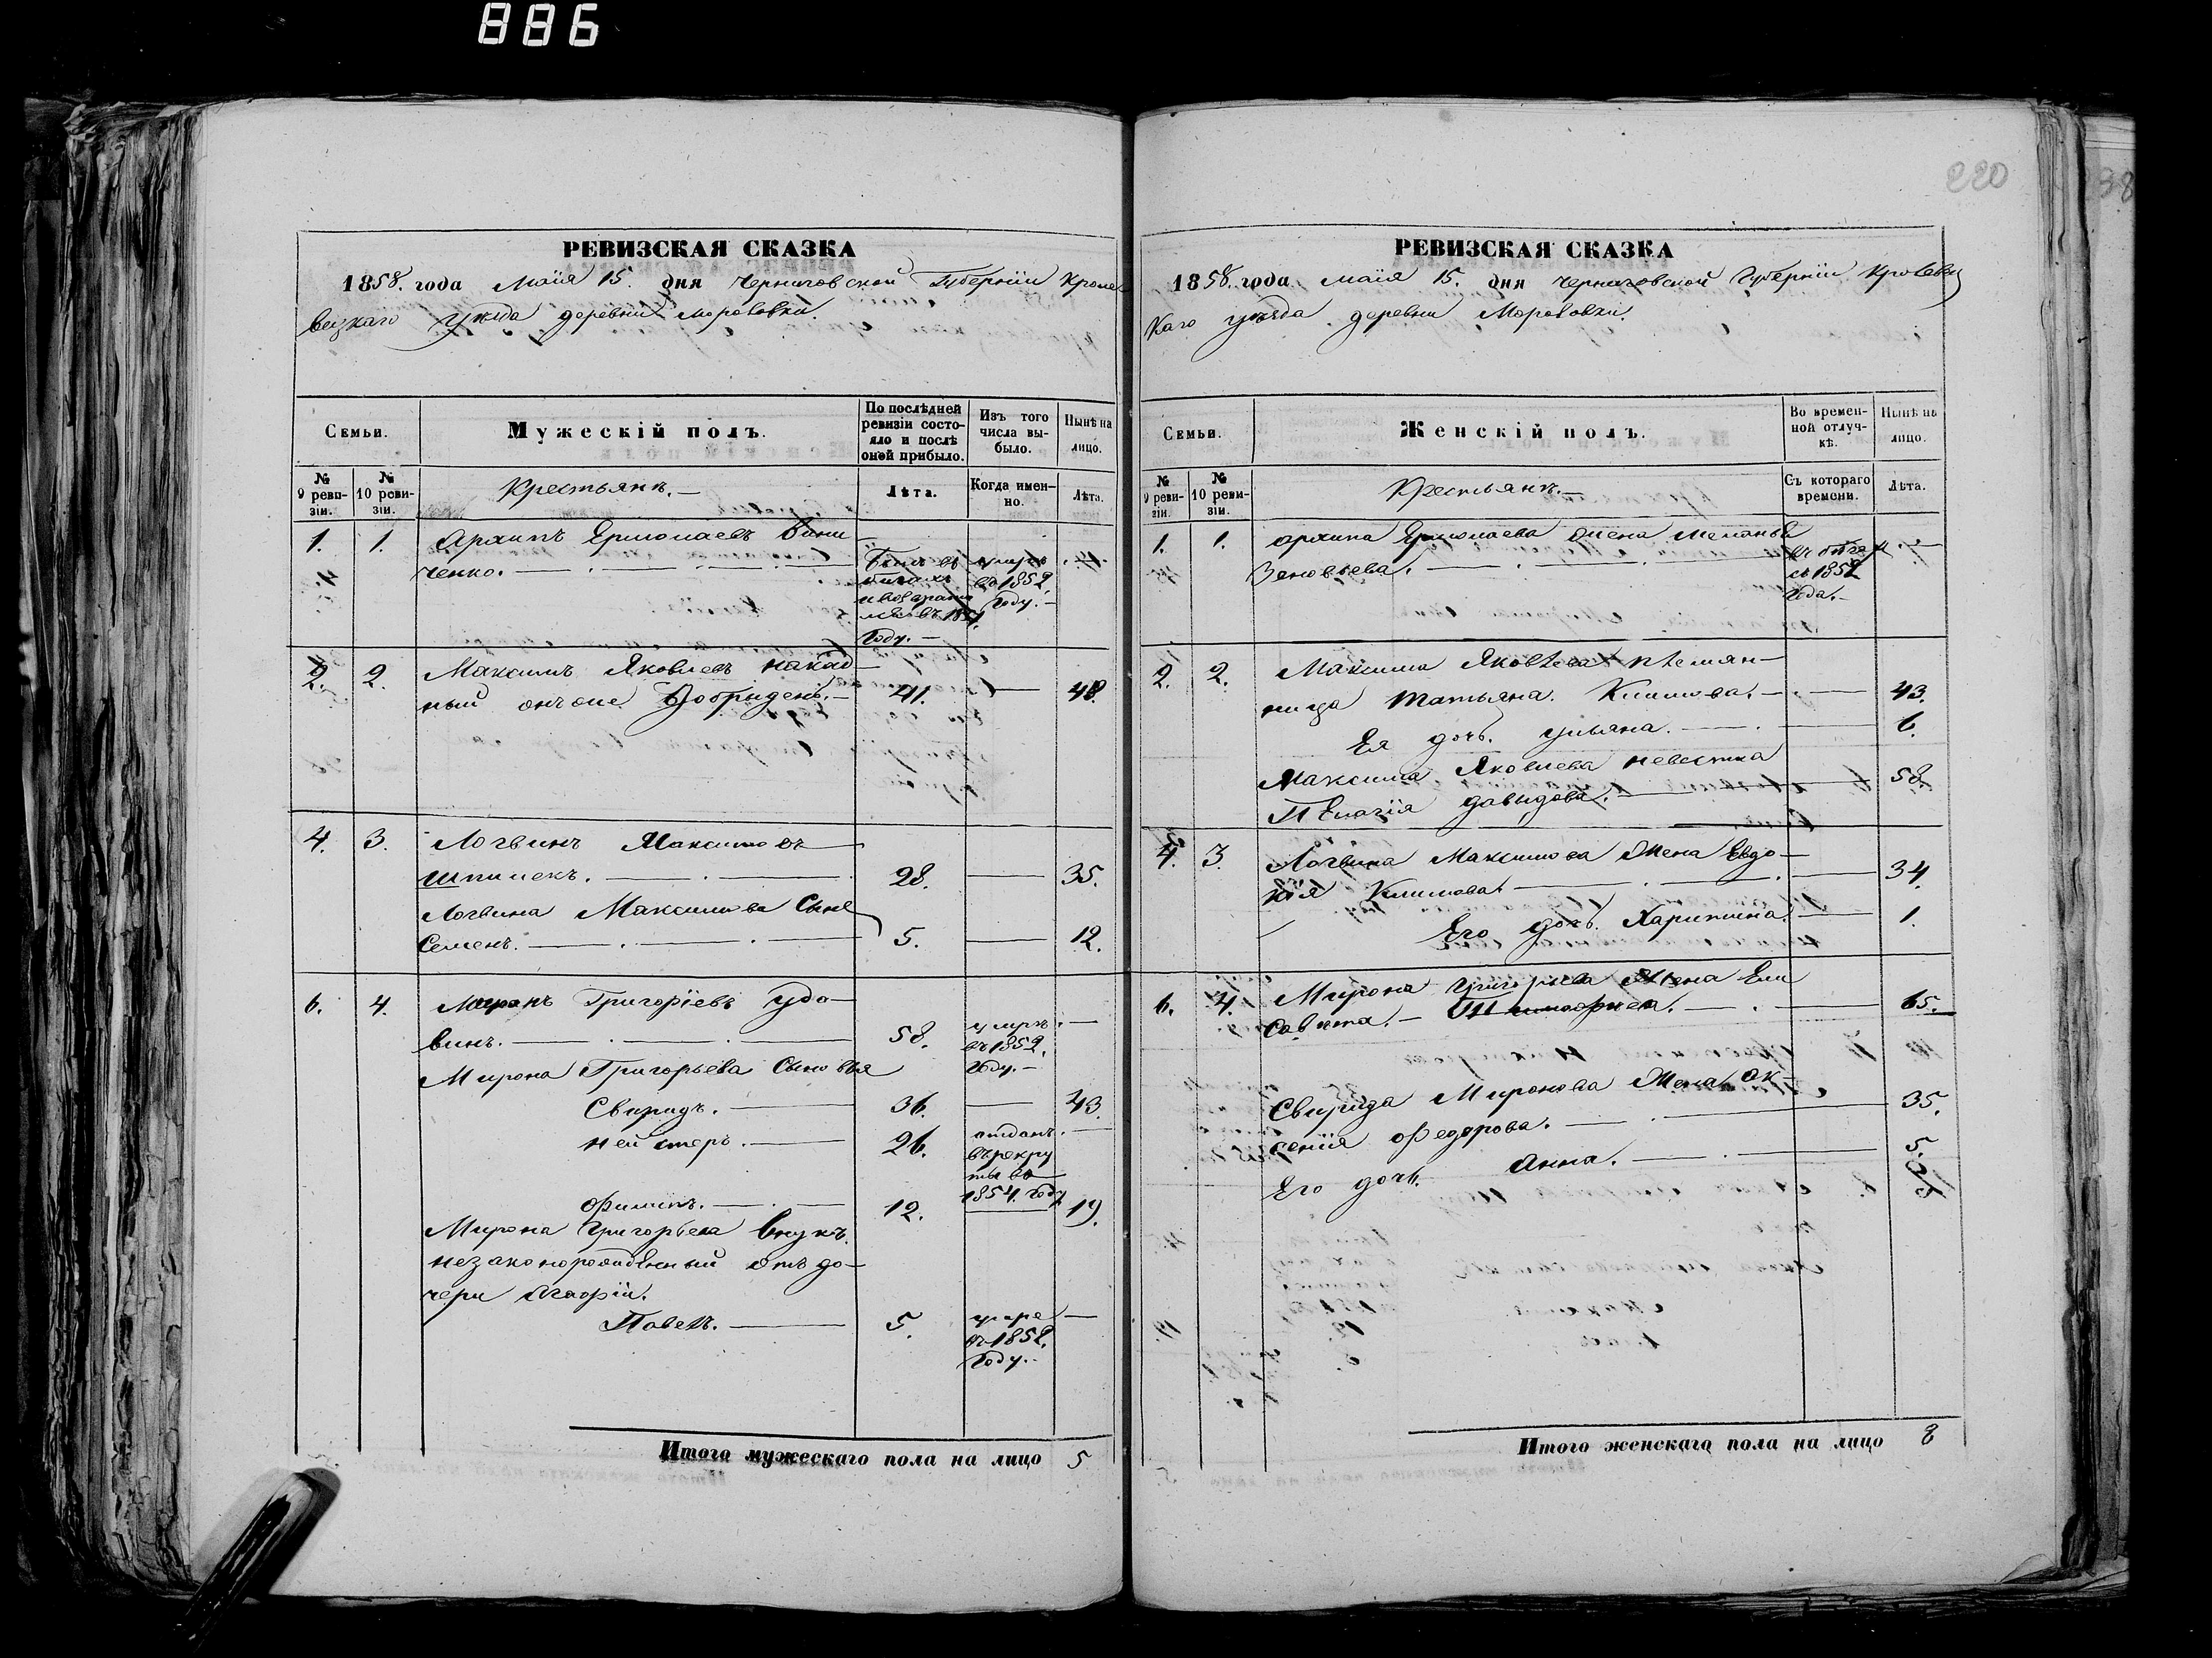 886
220
РЕВИЗСКАЯ СКАЗКА
1858. года маїя 15. дня Черниговской Губернїи Кроле
вецкаго уѣзда деревни Морововки.
Семьи.
Мужескій полъ.
По послѣдней ревизіи состояло и послѣ оной прибыло.
Изъ того числа выбыло.
Нынѣ на лицо.
№ 9 ревизіи.
№ 10 ревизіи.
Крестьянъ.—
Лѣта.
Когда именно.
Лѣта.
1. 1. Архипъ Ермолаевъ Вини
ченко. —
Былъ въ бѣгахъ
Году. —
умеръ въ 1852 Году. —
2. 2. Максимъ Яковлевъ
онъ же Добридень. — 41. — 48.
4. 3. Логвинъ Максимовъ
Шпилекъ. — 28. — 35.
Логвина Максимова Сынъ
Семенъ. — 5. — 12.
6. 4. Миронъ Григорїевъ Удо—
винъ. — 58. умръ въ 1852. Году. —
Мирона Григорьева Сыновья
Свиридъ. — 36. — 43.
Нейстеръ. — 26. отданъ въ рекруты въ 1854. Году —
Филипъ. — 12. — 19.
Мирона Григорьева Внукъ
незаконорожденный отъ до—
чери Агафїи.
Павелъ. — 5. умре въ 1852. Году. —
Итого мужескаго пола на лицо 5
РЕВИЗСКАЯ СКАЗКА
1858. года маїя 15. дня Черниговской Губернїи Кролевец
каго уѣзда деревни Морововки.
Семьи.
Женскій полъ.
Во временной отлучкѣ.
Нынѣ на лицо.
№ 9 ревизіи.
№ 10 ревизіи.
Крестьянъ.—
Съ котораго времени.
Лѣта.
1. 1. Архипа Ермолаева жена Меланья
Зеновьева. — въ бѣгах съ 1852 Года. —
2. 2. Максима Яковлева племян—
ница Татьяна Климова. — 43.
Ея дочь Ульяна. — 6.
Максима Яковлева невестка
Пелагїя Давыдова. — 58.
4. 3. Логвина Максимова Жена Евдо—
кїя Климова — 34.
Его дочь Харитина — 1.
6. 4. Мирона Григорьева Жена Ели
савета. — Тимофеева. — 65.
Свирида Миронова Жена Ок—
сенїя Федорова. — 35.
Его дочь Анна. — 5.
Итого женскаго пола на лицо 8